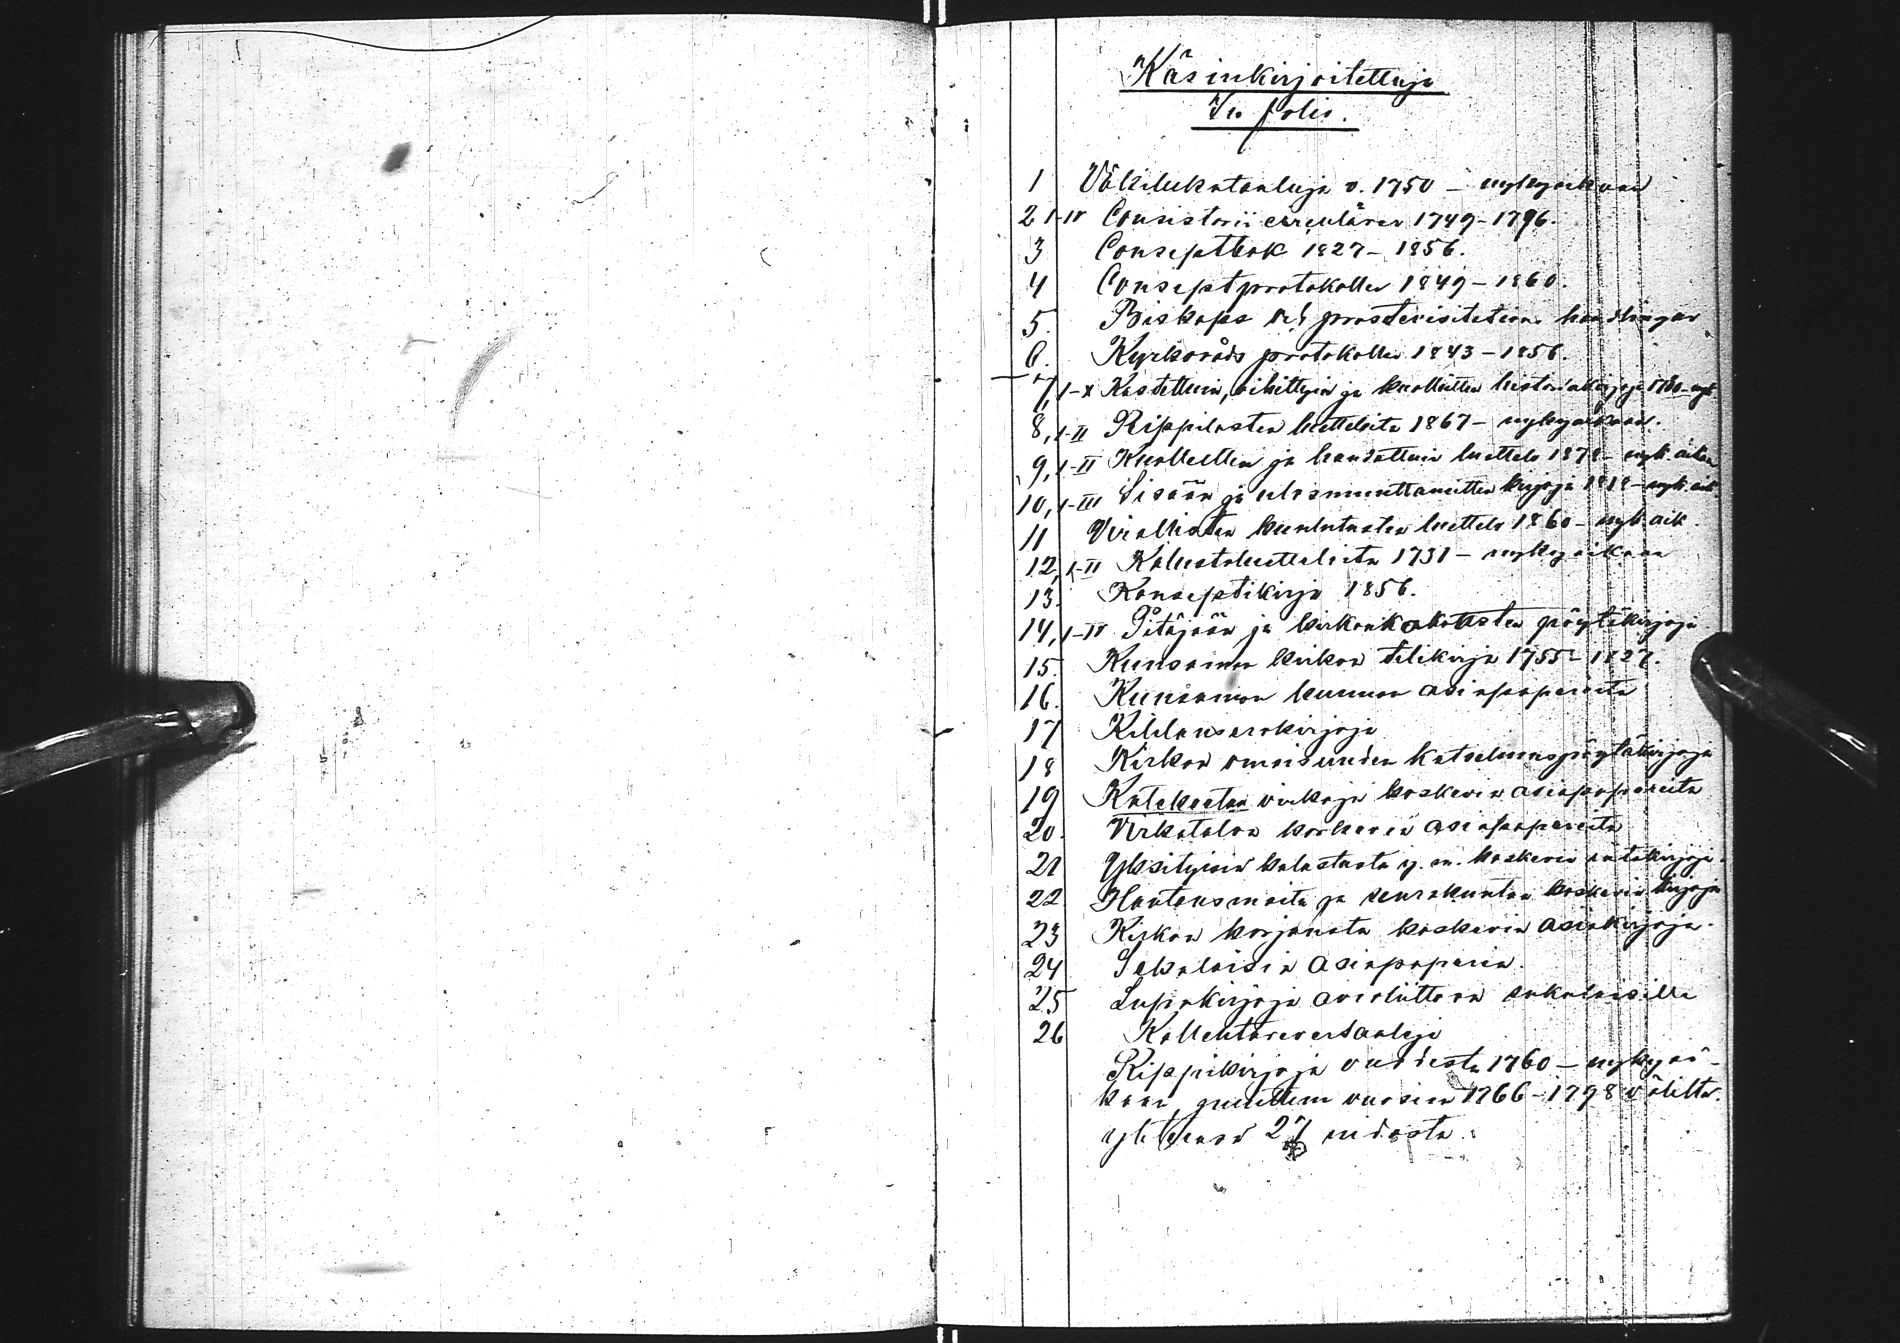 Käsinkirjoitettuja
In folio.
1 Väkilukutauluja v. 1750 – nykyaikaan
2 I-IV Consistorii circulärer 1749–1796.
3 Conseptbok 1827–1856.
4 Conseptprotokoller 1849–1860.
5. Biskops och prostevisitations handlingar
6. Kyrkoråds protokoller 1843–1856.
7, I-X Kastettuin, vihittyin ja kuolleitten historiakirjoja 1730–nyk.
8, I-II Rippilasten luetteloita 1867 – nykyaikaan.
9, I-II Kuolleitten ja haudattuin luettelo 1878 – nyk. aikaan
10, I-III Sisään ja ulosmuuttaneitten kirjoja 1812 – nyk. aik.
11 Virallisten kuulutusten luettelo 1860 – nyk. aik.
12, I-II Kalustoluetteloita 1731 – nykyaikaan
13. Konseptikirja 1856.
14, I-IV Pitäjään ja kirkonkokousten pöytäkirjoja
15. Kuusamon kirkon tilikirja 1755–1827.
16. Kuusamon kunnan asiapapereita
17 Kihlauserokirjoja
18 Kirkon omaisuuden katselmuspöytäkirjoja
19 Katekeetan virkoja koskevia asiapapereita
20. Virkatalon koskevia asiapapereita
21 Yksityisiä kalastusta y. m. koskevia asiakirjoja.
22. Hautausmaita ja seurakuntaa koskevia kirjoja
23 Kirkon korjausta koskevia asiakirjoja.
24 Sekalaisia asiapaperia.
25 Lupakirjoja avioliittoon sukulaisille
26 Kollehtareversaaleja
Rippikirjoja vuodesta 1760 – nykyai-
kaan, puuttuen vuosien 1766–1798 väliltä.
yhteensä 27 nidosta.